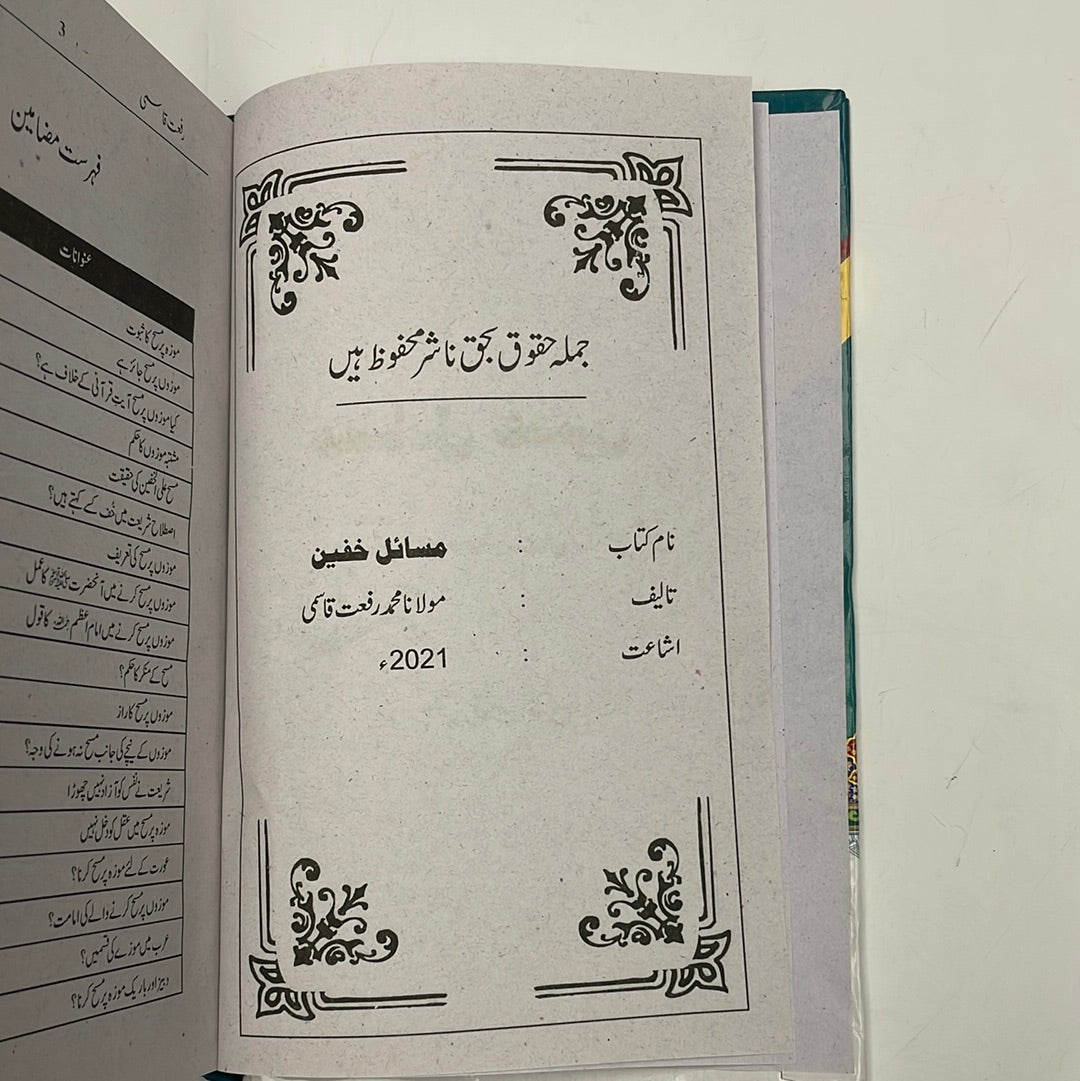 جملہ حقوق بحق ناشر محفوظ ہیں
نام کتاب : مسائل خفین
تالیف : مولانا محمد رفعت قاسمی
اشاعت : 2021ء
3
رفعت قاسمی
فہرست مضامین
عنوانات
موزہ پر مسح کا ثبوت
موزوں پر مسح جائز ہے
کیا موزوں پر مسح آیت قرآنی کے خلاف ہے؟
مشتبہ موزوں کا حکم
مسح علی الخفین کی حقیقت
اصطلاح شریعت میں خف کسے کہتے ہیں؟
موزوں پر مسح کی تعریف
موزوں پر مسح کرنے میں آنحضرت ﷺ کا عمل
موزوں پر مسح کرنے میں امام اعظم رحمۃ اللہ علیہ کا قول
مسح کے منکر کا حکم؟
موزوں پر مسح کا راز
موزوں کے نیچے کی جانب مسح نہ ہونے کی وجہ؟
شریعت نے نفس کو آزاد نہیں چھوڑا
موزہ پر مسح میں عقل کو دخل نہیں
عورت کے لئے موزہ پر مسح کرنا؟
موزوں پر مسح کرنے والے کی امامت؟
عرب میں موزے کی قسمیں؟
دبیز اور باریک موزہ پر مسح کرنا؟